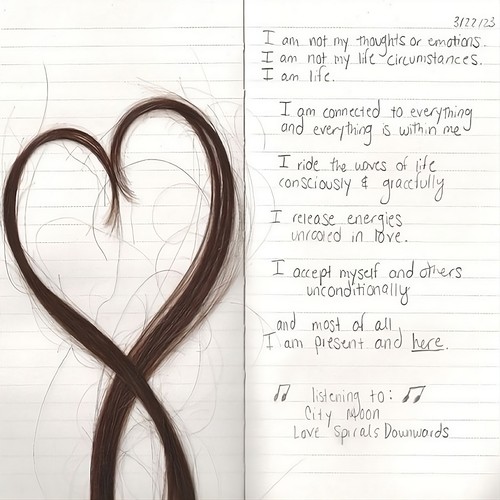 3/22/23
I am not my thoughts or emotions.
I am not my life circumstances.
I am life.
I am connected to everything
and everything is within me
I ride the waves of life
consciously & gracefully
I release energies
unrooted in love.
I accept myself and others
unconditionally
and most of all,
I am present and here.
♫ listening to: ♫
City Moon
Love Spirals Downwards